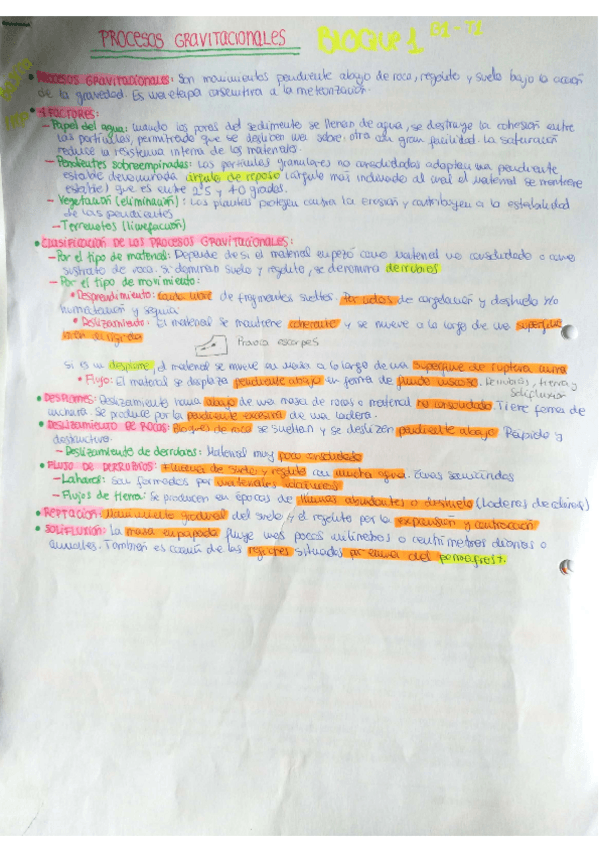 PROCESOS GRAVITACIONALES BLOQUE 1 B1-T2
• PROCESOS GRAVITACIONALES: Son movimientos pendiente abajo de roca, regolito y suelo bajo la acción
de la gravedad. Es una etapa consecutiva a la meteorización.
• 4 FACTORES:
- Papel del agua: Cuando los poros del sedimento se llenan de agua, se destruye la cohesión entre
las partículas, permitiendo que se deslicen una sobre otra con gran facilidad. La saturación
reduce la resistencia interna de los materiales.
- Pendientes sobreempinadas: Las partículas granulares no consolidadas adoptan una pendiente
estable denominada ángulo de reposo (ángulo más inclinado al cual el material se mantiene
estable) que es entre 25 y 40 grados.
- Vegetación (eliminación): Las plantas protegen contra la erosión y contribuyen a la estabilidad
de las pendientes
- Terremotos (licuefacción)
• CLASIFICACIÓN DE LOS PROCESOS GRAVITACIONALES:
- Por el tipo de material: Depende de si el material empezó como material no consolidado o como
sustrato de roca. Si dominan suelo y regolito, se denomina derrubios
- Por el tipo de movimiento:
• Desprendimiento: caída libre de fragmentos sueltos. Por ciclos de congelación y deshielo y/o
humectación y sequía
• Deslizamiento: El material se mantiene coherente y se mueve a lo largo de una superficie
Provoca escarpes
Si es un desplome, el material se mueve en masa a lo largo de una superficie de ruptura curva
• Flujo: El material se desplaza pendiente abajo en forma de fluido viscoso. Derrubios, tierra y
Solifluxión
• DESPLOMES: Deslizamiento hacia abajo de una masa de rocas o material no consolidado. Tiene forma de
cuchara. Se produce por la pendiente excesiva de una ladera.
• DESLIZAMIENTO DE ROCAS: Bloques de roca se sueltan y se deslizan pendiente abajo. Rápido y
destructivo.
- Deslizamiento de derrubios: Material muy poco consolidado
• FLUJO DE DERRUBIOS: Fluencia de suelo y regolito con mucha agua. Zonas semiáridas
- Lahares: Son formados por materiales volcánicos
- Flujos de tierra: Se producen en épocas de lluvias abundantes o deshielo (Laderas de colinas)
• REPTACIÓN: Movimiento gradual del suelo y el regolito por la expansión y contracción
• SOLIFLUXIÓN: La masa empapada fluye unos pocos milímetros o centímetros diarios o
anuales. También es común de las regiones situadas por encima del permafrost.